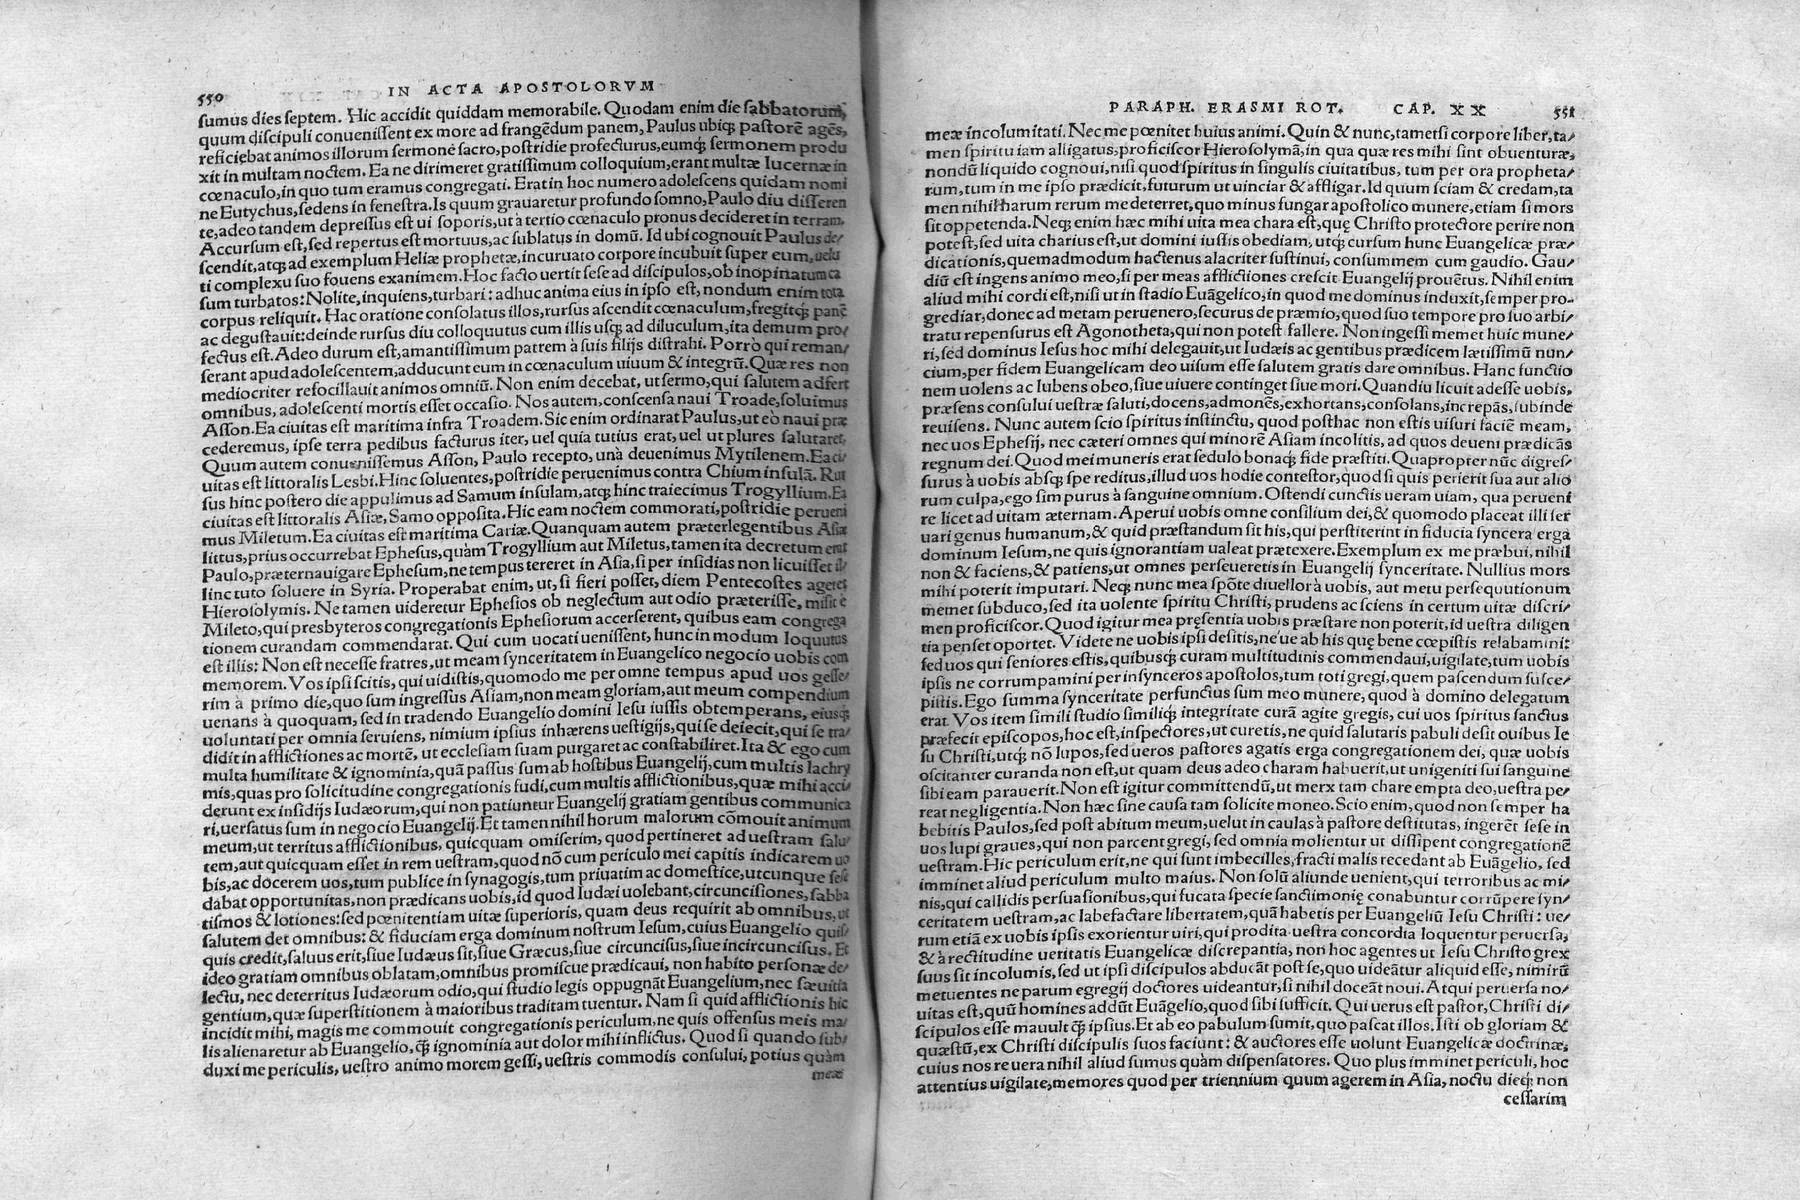 550 IN ACTA APOSTOLORVM
sumus dies septem. Hic accidit quiddam memorabile. Quodam enim die sabbatorum,
quum discipuli conuenissent ex more ad frangẽdum panem, Paulus ubiq; pastorẽ agẽs,
reficiebat animos illorum sermone sacro, postridie profecturus, eumq́; sermonem produ
xit in multam noctem. Ea ne dirimeret gratissimum colloquium, erant multæ lucernæ in
cœnaculo, in quo tum eramus congregati. Erat in hoc numero adolescens quidam nomi
ne Eutychus, sedens in fenestra. Is quum grauaretur profundo somno, Paulo diu disseren
te, adeo tandem depressus est ui soporis, ut à tertio cœnaculo pronus decideret in terram.
Accursum est, sed repertus est mortuus, ac sublatus in domũ. Id ubi cognouit Paulus de/
scendit, atq; ad exemplum Heliæ prophetæ, incuruato corpore incubuit super eum, uelu
ti complexu suo fouens exanimem. Hoc facto uertit sese ad discipulos, ob inopinatum ca
sum turbatos: Nolite, inquiens, turbari: adhuc anima eius in ipso est, nondum enim tota
corpus reliquit. Hac oratione consolatus illos, rursus ascendit cœnaculum, fregitq́; panẽ
ac degustauit: deinde rursus diu colloquutus cum illis usq; ad diluculum, ita demum pro/
fectus est. Adeo durum est, amantissimum patrem à suis filijs distrahi. Porrò qui reman/
serant apud adolescentem, adducunt eum in cœnaculum uiuum & integrũ. Quæ res non
mediocriter refocillauit animos omniũ. Non enim decebat, ut sermo, qui salutem adfert
omnibus, adolescenti mortis esset occasio. Nos autem, conscensa naui Troade, soluimus
Asson. Ea ciuitas est maritima infra Troadem. Sic enim ordinarat Paulus, ut eò naui præ
cederemus, ipse terra pedibus facturus iter, uel quia tutius erat, uel ut plures salutaret.
Quum autem conuenissemus Asson, Paulo recepto, unà deuenimus Mytilenem. Ea ci/
uitas est littoralis Lesbi. Hinc soluentes, postridie peruenimus contra Chium insulã. Rur
sus hinc postero die appulimus ad Samum insulam, atq; hinc traiecimus Trogyllium. Ea
ciuitas est littoralis Asiæ, Samo opposita. Hic eam noctem commorati, postridie perueni
mus Miletum. Ea ciuitas est maritima Cariæ. Quanquam autem præterlegentibus Asiæ
littus, prius occurrebat Ephesus, quàm Trogyllium aut Miletus, tamen ita decretum erat
Paulo, præternauigare Ephesum, ne tempus tereret in Asia, si per insidias non licuisset il/
linc tuto soluere in Syria. Properabat enim, ut, si fieri posset, diem Pentecostes ageret
Hierosolymis. Ne tamen uideretur Ephesios ob neglectum aut odio præterisse, misit è
Mileto, qui presbyteros congregationis Ephesiorum accerserent, quibus eam congrega
tionem curandam commendarat. Qui cum uocati uenissent, hunc in modum loquutus
est illis: Non est necesse fratres, ut meam synceritatem in Euangelico negocio uobis com
memorem. Vos ipsi scitis, qui uidistis, quomodo me per omne tempus apud uos gesse/
rim à primo die, quo sum ingressus Asiam, non meam gloriam, aut meum compendium
uenans à quoquam, sed in tradendo Euangelio domini Iesu iussis obtemperans, eiusq́;
uoluntati per omnia seruiens, nimium ipsius inhærens uestigijs, qui se deiecit, qui se tra/
didit in afflictiones ac mortẽ, ut ecclesiam suam purgaret ac constabiliret. Ita & ego cum
multa humilitate & ignominia, quã passus sum ab hostibus Euangelij, cum multis lachry
mis, quas pro solicitudine congregationis fudi, cum multis afflictionibus, quæ mihi acci/
derunt ex insidijs Iudæorum, qui non patiuntur Euangelij gratiam gentibus communica
ri, uersatus sum in negocio Euangelij. Et tamen nihil horum malorum cõmouit animum
meum, ut territus afflictionibus, quicquam omiserim, quod pertineret ad uestram salu/
tem, aut quicquam esset in rem uestram, quod nõ cum periculo mei capitis indicarem uo
bis, ac docerem uos, tum publice in synagogis, tum priuatim ac domestice, utcunque sese
dabat opportunitas, non prædicans uobis, id quod Iudæi uolebant, circuncisiones, sabba
tismos & lotiones: sed pœnitentiam uitæ superioris, quam deus requirit ab omnibus, ut
salutem det omnibus: & fiduciam erga dominum nostrum Iesum, cuius Euangelio quis/
quis credit, saluus erit, siue Iudæus sit, siue Græcus, siue circuncisus, siue incircuncisus. Et
ideo gratiam omnibus oblatam, omnibus promiscue prædicaui, non habito personæ de/
lectu, nec deterritus Iudæorum odio, qui studio legis oppugnãt Euangelium, nec sæuitia
gentium, quæ superstitionem à maioribus traditam tuentur. Nam si quid afflictionis hic
incidit mihi, magis me commouit congregationis periculum, ne quis offensus meis ma/
lis alienaretur ab Euangelio, q̃; ignominia aut dolor mihi inflictus. Quod si quando sub/
duxi me periculis, uestro animo morem gessi, uestris commodis consului, potius quàm
meæ
PARAPH. ERASMI ROT. CAP. XX 551
meæ incolumitati. Nec me pœnitet huius animi. Quin & nunc, tametsi corpore liber, ta/
men spiritu iam alligatus, proficiscor Hierosolymã, in qua quæ res mihi sint obuenturæ,
nondũ liquido cognoui, nisi quod spiritus in singulis ciuitatibus, tum per ora propheta/
rum, tum in me ipso prædicit, futurum ut uinciar & affligar. Id quum sciam & credam, ta
men nihil harum rerum me deterret, quo minus fungar apostolico munere, etiam si mors
sit oppetenda. Neq; enim hæc mihi uita mea chara est, quę Christo protectore perire non
potest, sed uita charius est, ut domini iussis obediam, utq; cursum hunc Euangelicæ præ/
dicationis, quemadmodum hactenus alacriter sustinui, consummem cum gaudio. Gau/
diũ est ingens animo meo, si per meas afflictiones crescit Euangelij prouẽtus. Nihil enim
aliud mihi cordi est, nisi ut in stadio Euãgelico, in quod me dominus induxit, semper pro/
grediar, donec ad metam peruenero, securus de præmio, quod suo tempore pro suo arbi/
tratu repensurus est Agonotheta, qui non potest fallere. Non ingessi memet huic mune/
ri, sed dominus Iesus hoc mihi delegauit, ut Iudæis ac gentibus prædicem lætissimũ nun/
cium, per fidem Euangelicam deo uisum esse salutem gratis dare omnibus. Hanc functio
nem uolens ac lubens obeo, siue uiuere continget siue mori. Quandiu licuit adesse uobis,
præsens consului uestræ saluti, docens, admonẽs, exhortans, consolans, increpãs, subinde
reuisens. Nunc autem scio spiritus instinctu, quod posthac non estis uisuri faciẽ meam,
nec uos Ephesij, nec cæteri omnes qui minorẽ Asiam incolitis, ad quos deueni prædicãs
regnum dei. Quod mei muneris erat sedulo bonaq́; fide præstiti. Quapropter nũc digres/
surus à uobis absq; spe reditus, illud uos hodie contestor, quod si quis perierit sua aut alio
rum culpa, ego sim purus à sanguine omnium. Ostendi cunctis ueram uiam, qua perueni
re licet ad uitam æternam. Aperui uobis omne consilium dei, & quomodo placeat illi ser
uari genus humanum, & quid præstandum sit his, qui perstiterint in fiducia syncera erga
dominum Iesum, ne quis ignorantiam ualeat prætexere. Exemplum ex me præbui, nihil
non & faciens, & patiens, ut omnes perseueretis in Euangelij synceritate. Nullius mors
mihi poterit imputari. Neq; nunc mea spõte diuellor à uobis, aut metu persequutionum
memet subduco, sed ita uolente spiritu Christi, prudens ac sciens in certum uitæ discri/
men proficiscor. Quod igitur mea pręsentia uobis præstare non poterit, id uestra diligen
tia penset oportet. Videte ne uobis ipsi desitis, ne'ue ab his quę bene cœpistis relabamini:
sed uos qui seniores estis, quibusq́; curam multitudinis commendaui, uigilate, tum uobis
ipsis ne corrumpamini per insynceros apostolos, tum toti gregi, quem pascendum susce/
pistis. Ego summa synceritate perfunctus sum meo munere, quod à domino delegatum
erat. Vos item simili studio similiq́; integritate curã agite gregis, cui uos spiritus sanctus
præfecit episcopos, hoc est, inspectores, ut curetis, ne quid salutaris pabuli desit ouibus Ie
su Christi, utq́; nõ lupos, sed ueros pastores agatis erga congregationem dei, quæ uobis
oscitanter curanda non est, ut quam deus adeo charam habuerit, ut unigeniti sui sanguine
sibi eam parauerit. Non est igitur committendũ, ut merx tam chare empta deo, uestra pe/
reat negligentia. Non hæc sine causa tam solicite moneo. Scio enim, quod non semper ha
bebitis Paulos, sed post abitum meum, uelut in caulas à pastore destitutas, ingerẽt sese in
uos lupi graues, qui non parcent gregi, sed omnia molientur ut dissipent congregationẽ
uestram. Hic periculum erit, ne qui sunt imbecilles, fracti malis recedant ab Euãgelio, sed
imminet aliud periculum multo maius. Non solũ aliunde uenient, qui terroribus ac mi/
nis, qui callidis persuasionibus, qui fucata specie sanctimonię conabuntur corrũpere syn/
ceritatem uestram, ac labefactare libertatem, quã habetis per Euangeliũ Iesu Christi: ue/
rum etiã ex uobis ipsis exorientur uiri, qui prodita uestra concordia loquentur peruersa,
& à rectitudine ueritatis Euangelicæ discrepantia, non hoc agentes ut Iesu Christo grex
suus sit incolumis, sed ut ipsi discipulos abducãt post se, quo uideãtur aliquid esse, nimirũ
metuentes ne parum egregij doctores uideantur, si nihil doceãt noui. Atqui peruersa no/
uitas est, quũ homines addũt Euãgelio, quod sibi sufficit. Qui uerus est pastor, Christi di/
scipulos esse mauult q̃; ipsius. Et ab eo pabulum sumit, quo pascat illos. Isti ob gloriam &
quæstũ, ex Christi discipulis suos faciunt: & auctores esse uolunt Euangelicæ doctrinæ,
cuius nos reuera nihil aliud sumus quàm dispensatores. Quo plus imminet periculi, hoc
attentius uigilate, memores quod per triennium quum agerem in Asia, noctu dieq́; non
cessarim